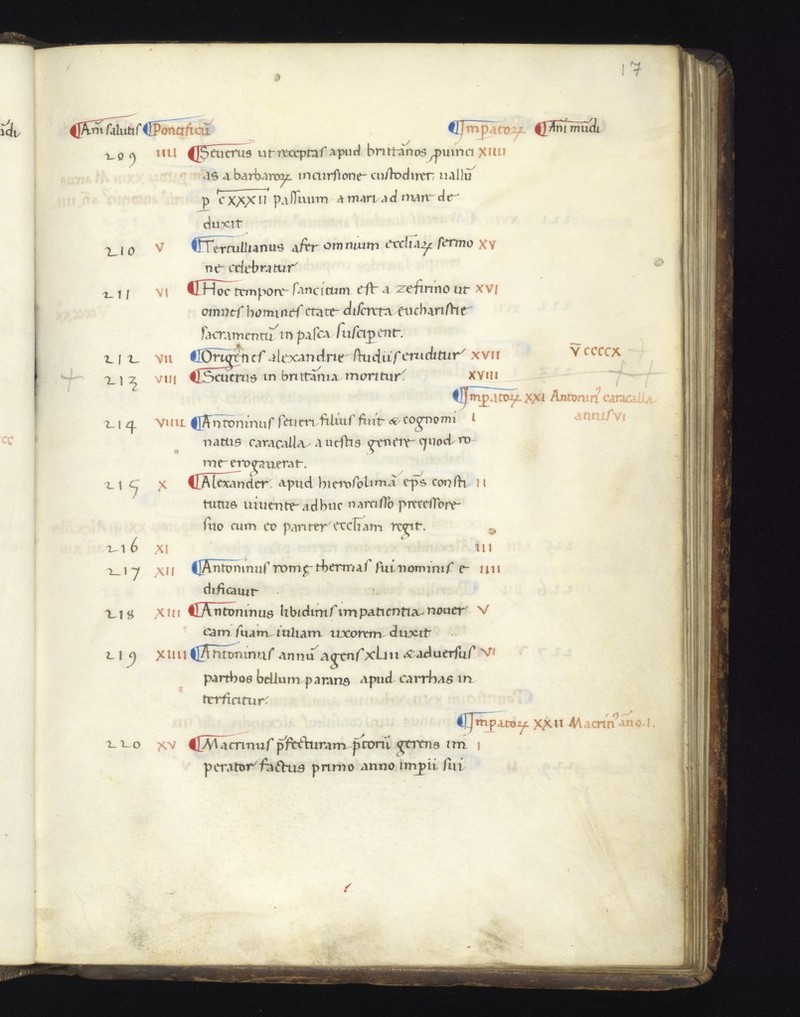 17
Anī salutis Pontificū Impatoꝝ Ani mūdi
209 IIII Seuerus ut receptas apud brittānos ꝓuinci XIIII
as a barbaroꝝ incursione custodiret: uallū
p CXXXII passuum a mari ad mare de
duxit
210 V Tertullianus afer omnium eccliaꝝ sermo XV
ne celebratur
211 VI Hoc tempore sancitum est a zefirino ut XVI
omnes homines etate discreta eucharistie
sacramentū in pasca susciperent.
212 VII Origenes alexandrie studiis eruditur XVII V̄ CCCCX
213 VIII Seuerus in brittānia moritur. XVIII
Impatoꝝ XXI Antonin᷒ caracalla
annis VI
214 VIIII Antoninus seueri filius fuit & cognomi I
natus caracalla a uestis genere quod ro
me erogauerat.
215 X Alexander apud hierosolimā ep̄s consti II
tutus uiuente adhuc narcisso precessore
suo cum eo pariter eccl̄iam regit.
216 XI III
217 XII Antoninus romę thermas sui nominis e IIII
dificauit
218 XIII Antoninus libidinis impatientia nouer V
cam suam iuliam uxorem duxit
219 XIIII Antoninus annū agens XLIII & aduersus VI
parthos bellum parans apud carrhas in
terficitur.
Impatoꝝ XXII Macrin᷒ año .I.
220 XV Macrinus p̄fecturam p̄torii gerens im I
perator factus primo anno imp̄ii sui